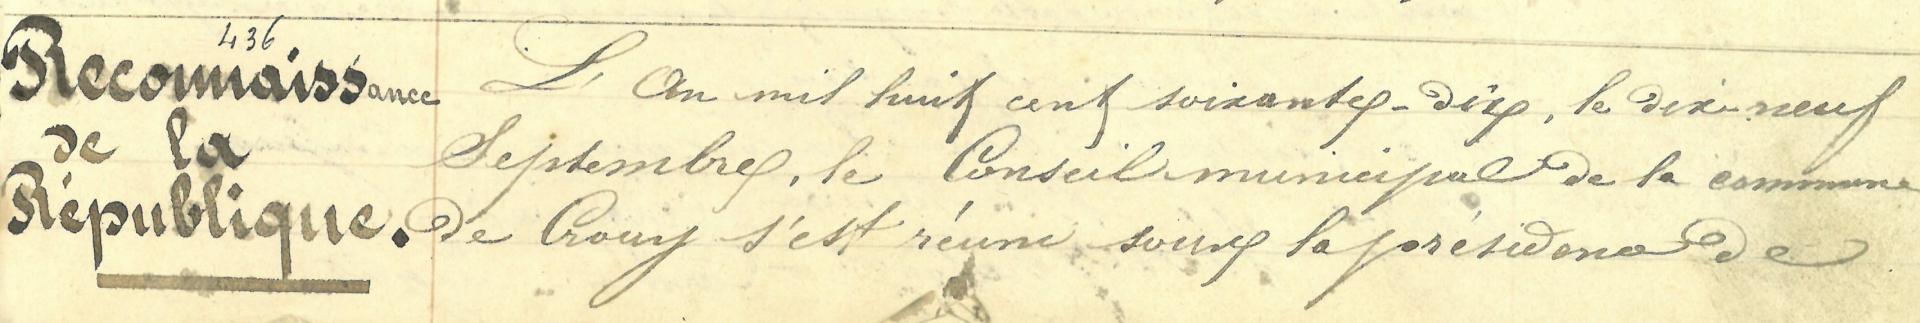 436
Reconnaissance
de la
République.
L'An mil huit cent soixante-dix, le dix-neuf
Septembre, le Conseil municipal de la commune
de Crouy s'est réuni sous la présidence de